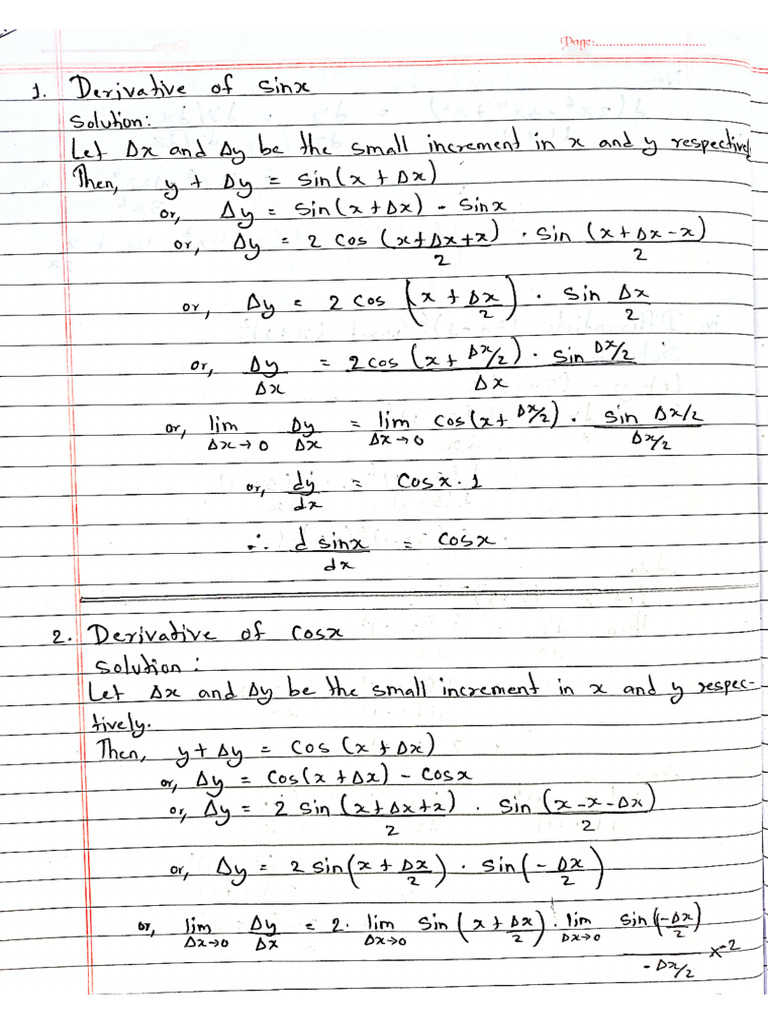 Page:................................
1. Derivative of sinx
Solution:
Let Δx and Δy be the small increment in x and y respectively
Then, y + Δy = sin(x + Δx)
or, Δy = sin(x + Δx) - sinx
or, Δy = 2 cos (x+Δx+x)/2 · sin (x+Δx-x)/2
or, Δy = 2 cos (x + Δx/2) · sin Δx/2
or, Δy/Δx = 2cos (x + Δx/2) · sin Δx/2 / Δx
or, lim Δx→0 Δy/Δx = lim Δx→0 cos(x + Δx/2) · sin Δx/2 / Δx/2
or, dy/dx = cosx · 1
∴ d sinx/dx = cosx.
2. Derivative of cosx
Solution:
Let Δx and Δy be the small increment in x and y respec-
tively.
Then, y + Δy = cos (x + Δx)
or, Δy = cos(x + Δx) - cosx
or, Δy = 2 sin (x+Δx+x)/2 · sin (x-x-Δx)/2
or, Δy = 2 sin(x + Δx/2) · sin(-Δx/2)
or, lim Δx→0 Δy/Δx = 2· lim Δx→0 sin (x + Δx/2) · lim Δx→0 sin(-Δx/2) / -Δx/2 x-2